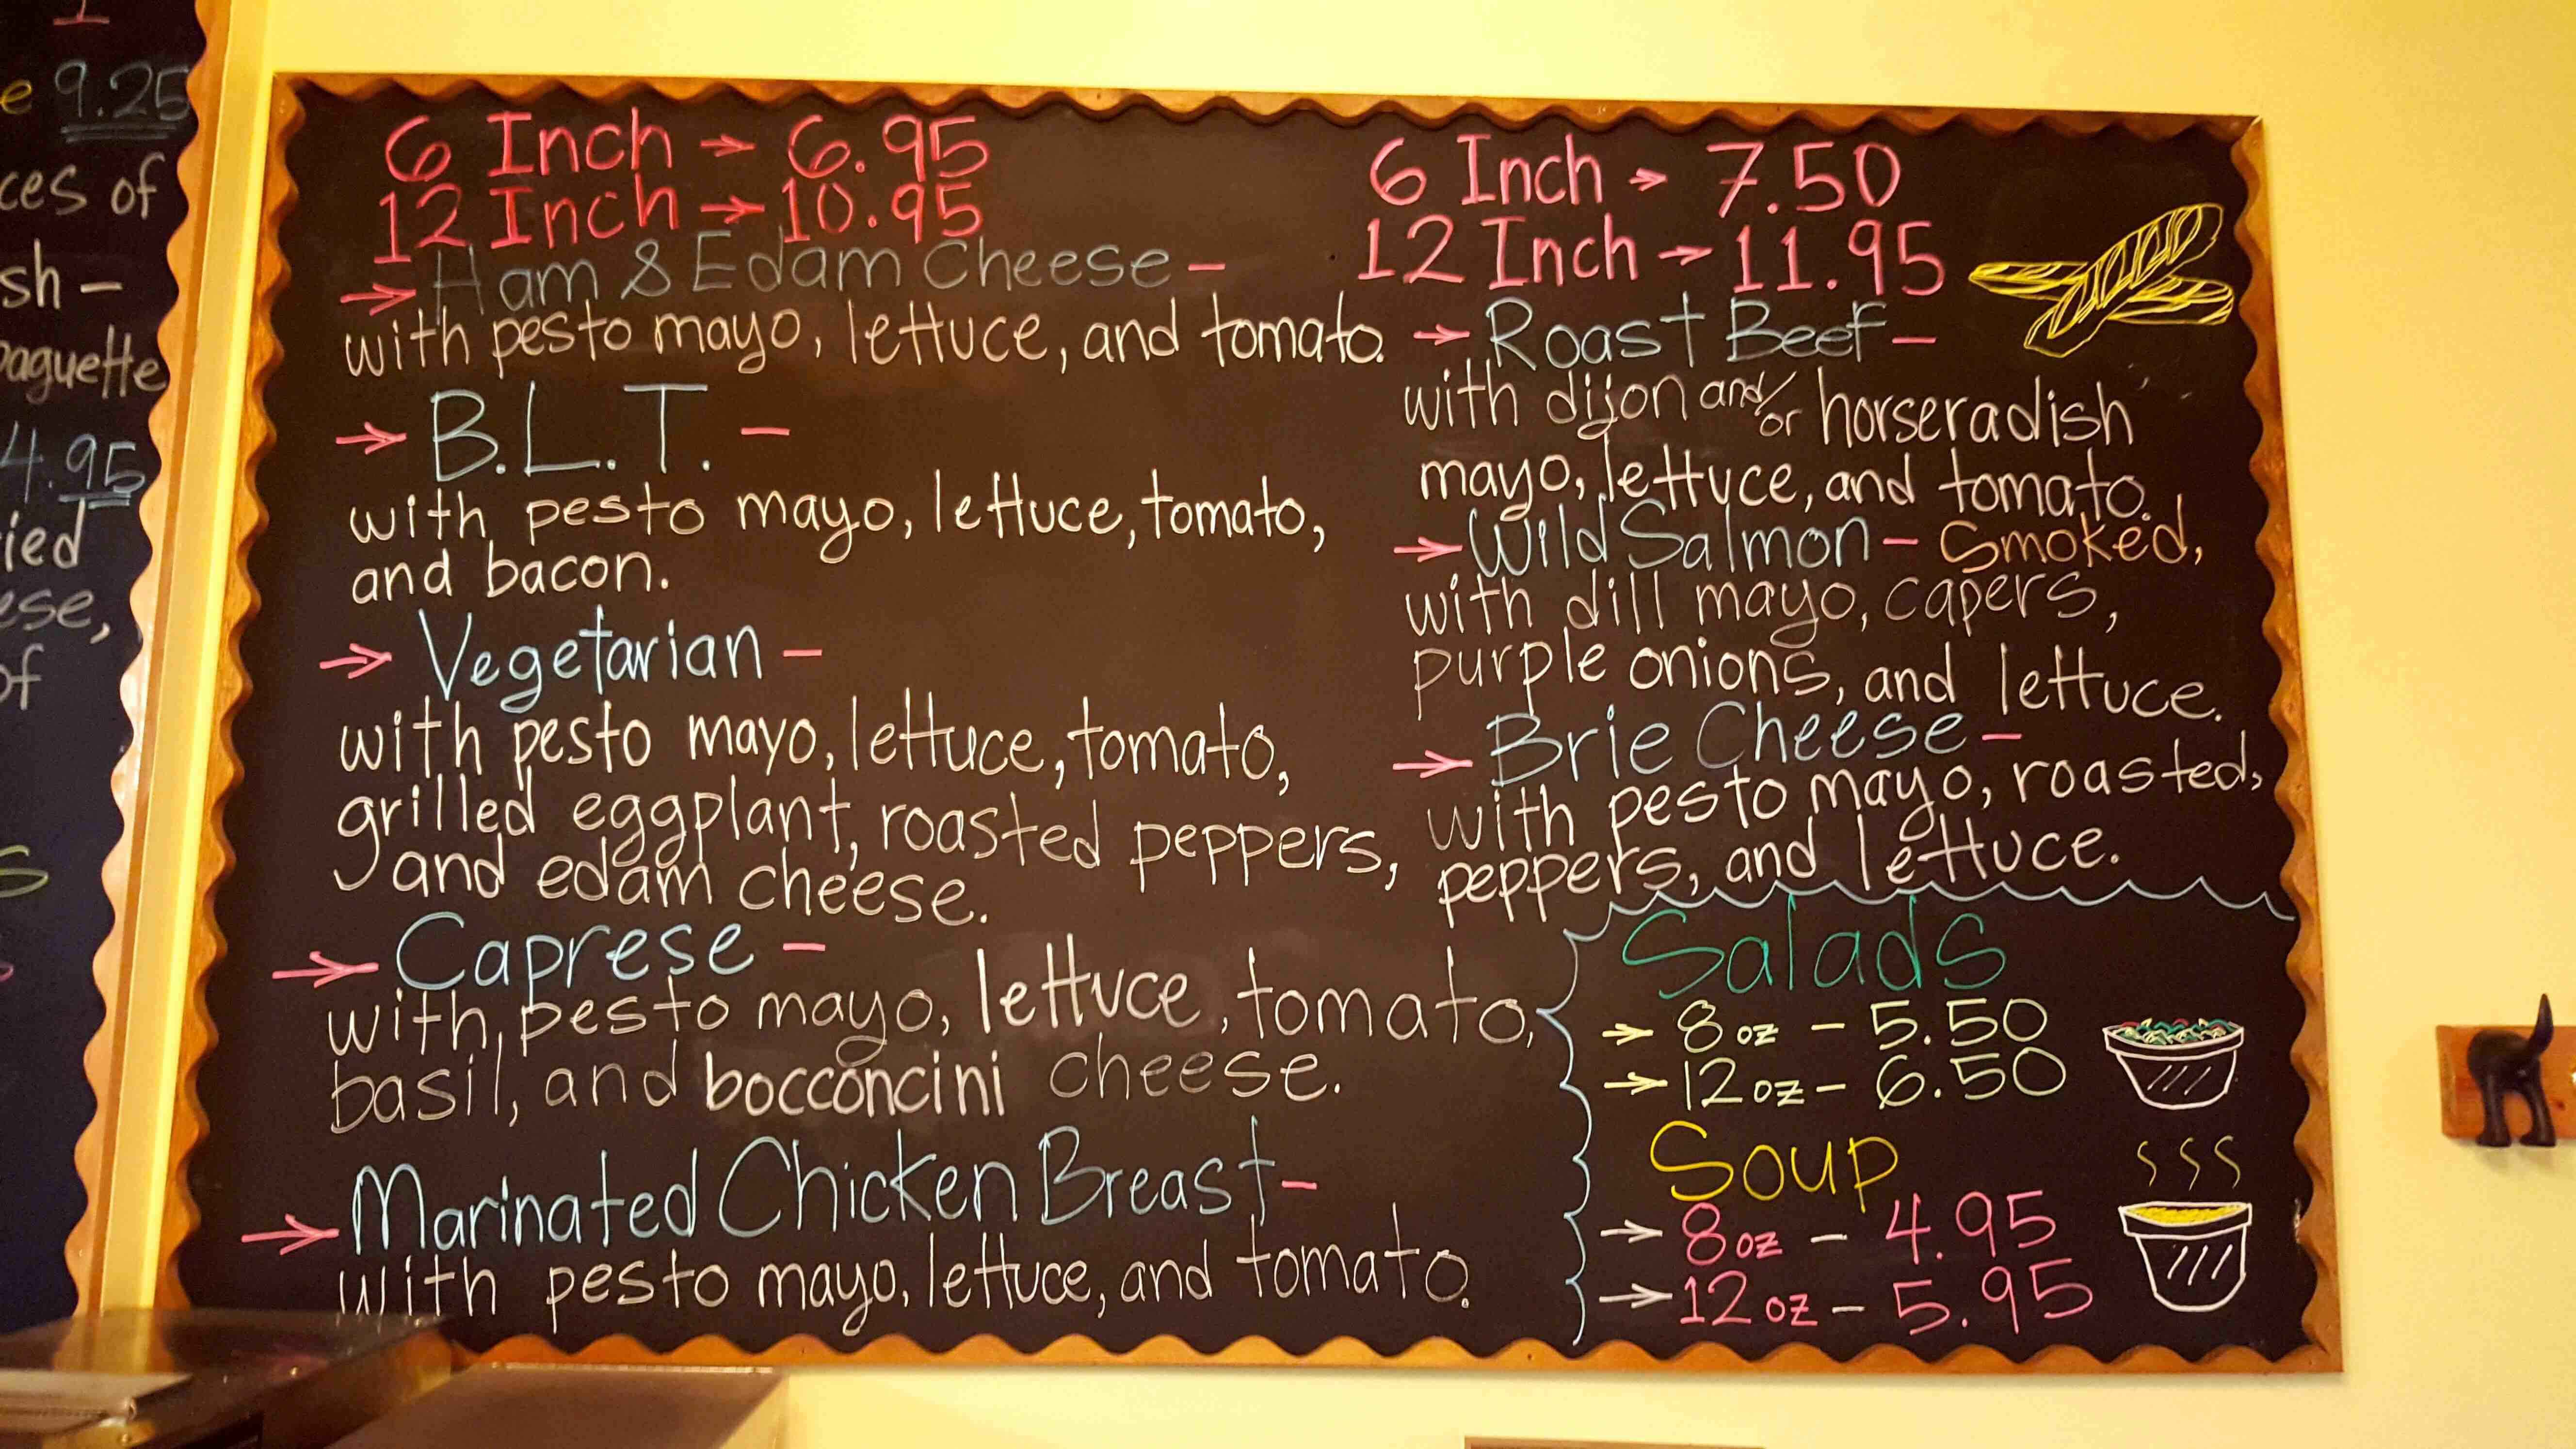 e 9.25
ces of
sh -
baguette
4.95
ied
ese,
of
6 Inch → 6.95
12 Inch → 10.95
→ Ham & Edam Cheese -
with pesto mayo, lettuce, and tomato.
→ B.L.T. -
with pesto mayo, lettuce, tomato,
and bacon.
→ Vegetarian -
with pesto mayo, lettuce, tomato,
grilled eggplant, roasted peppers,
and edam cheese.
→ Caprese -
with pesto mayo, lettuce, tomato,
basil, and bocconcini cheese.
→ Marinated Chicken Breast -
with pesto mayo, lettuce, and tomato.
6 Inch → 7.50
12 Inch → 11.95
→ Roast Beef -
with dijon and/or horseradish
mayo, lettuce, and tomato.
→ Wild Salmon - Smoked,
with dill mayo, capers,
purple onions, and lettuce.
→ Brie Cheese -
with pesto mayo, roasted,
peppers, and lettuce.
Salads
→ 8oz - 5.50
→ 12oz - 6.50
Soup
→ 8oz - 4.95
→ 12oz - 5.95